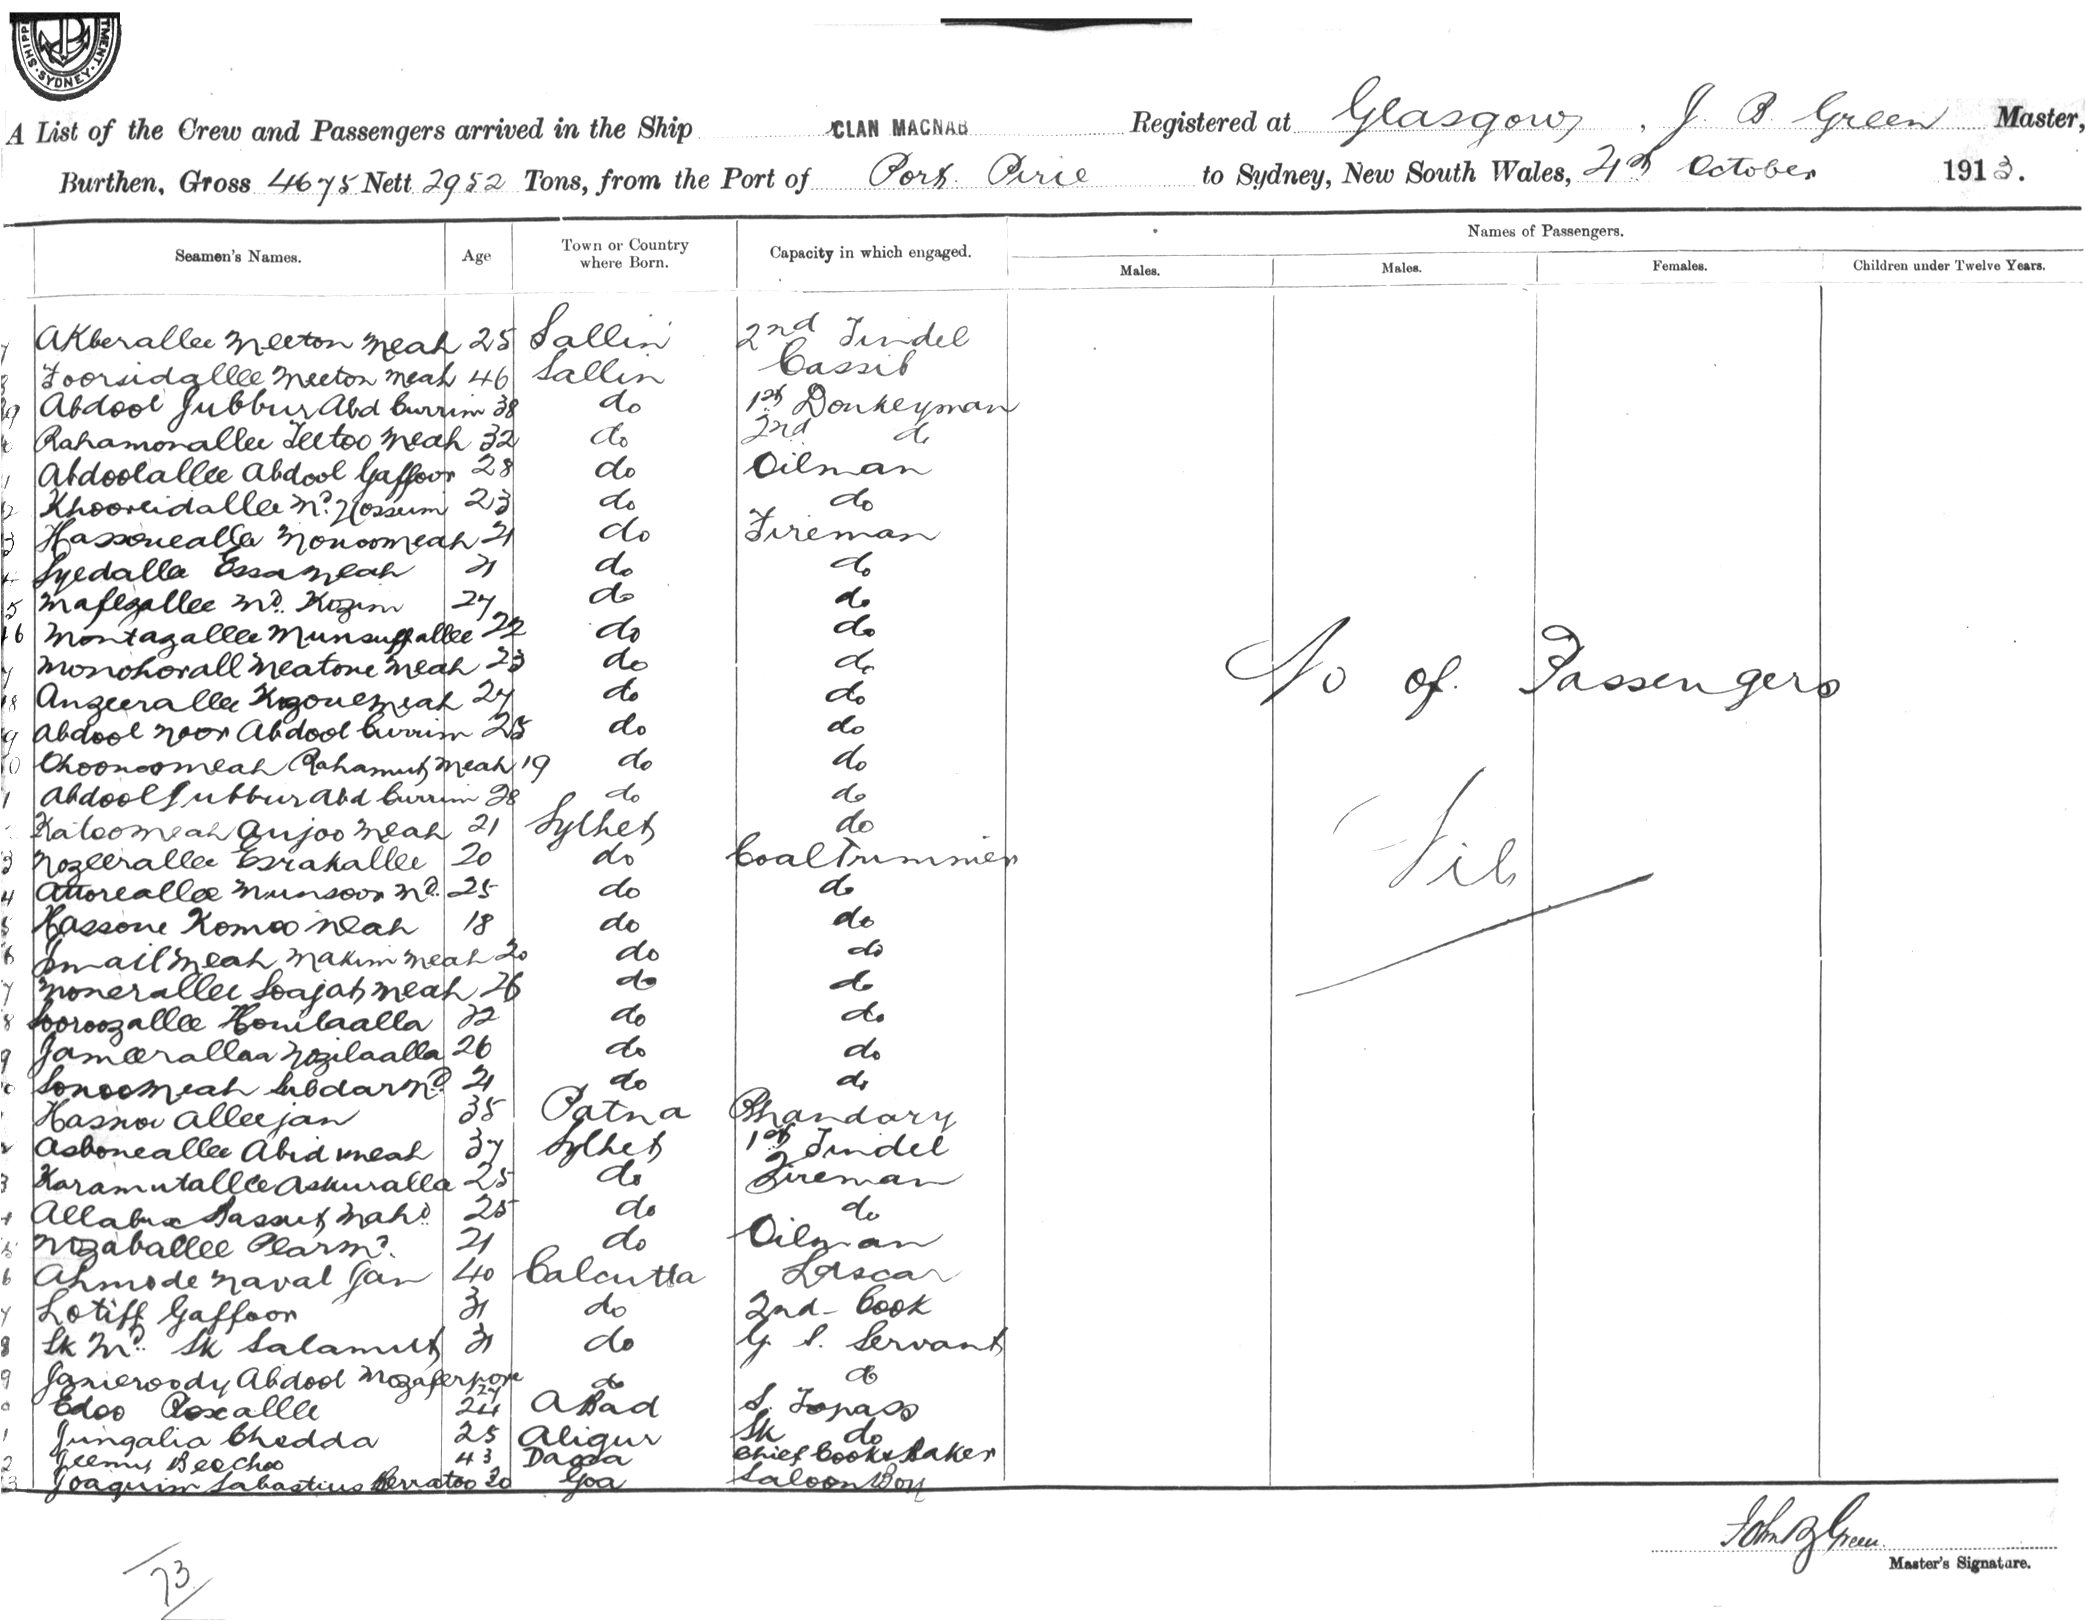 SHIPPI
MENT
SYDNEY
A List of the Crew and Passengers arrived in the Ship CLAN MACNAB Registered at Glasgow, J. B. Green Master,
Burthen, Gross 4675 Nett 2952 Tons, from the Port of Port Pirie to Sydney, New South Wales, 4th October 1913.
Names of Passengers.
Seamen's Names. Age Town or Country where Born. Capacity in which engaged. Males. Males. Females. Children under Twelve Years.
7 Akberallee Meeton Meah 25 Sallin 2nd Tindel
8 Foorsidallee Meeton Meah 46 Sallin Cassib
39 Abdool Jubbur Abd Currim 38 do 1st Donkeyman
Rahamonallee Teetoo Meah 32 do 2nd do
1 Abdoolallee Abdool Gaffoor 28 do Oilman
2 Khoorsidallee Md. Hossum 23 do do
3 Hassoneallee Monoomeah 21 do Fireman
4 Syedalla Essa Meah 21 do do
5 Mafezallee Md. Kozim 27 do do
46 Montazallee Munsuffallee 22 do do
7 Monohorall Meatone Meah 23 do do
48 Anzeerallee Kozoue Meah 27 do do
9 Abdool Noor Abdool Currim 25 do do
0 Choonoomeah Rahamut Meah 19 do do
1 Abdool Jubbur Abd Currim 28 do do
Katoomeah Anjoo Meah 21 Sylhet do
3 Nozeerallee Esrakallee 20 do Coal Trimmer
4 Attoreallee Munsoor Md. 25 do do
5 Hassone Komoo Meah 18 do do
6 Ismail Meah Makim Meah 20 do do
7 Monerallee Soajat Meah 26 do do
8 Sooroozallee Honilaalla 22 do do
9 Jameerallaa Nozilaalla 26 do do
0 Sonoomeah Subdar Md 21 do do
Hasnoo Alleejan 35 Patna Bhandary
2 Asboneallee Abid Meah 37 Sylhet 1st Tindel
3 Karamutallee Askuralla 25 do Fireman
4 Allabux Bassut Mahd 25 do do
5 Nozaballee Pear Md. 21 do Oilman
6 Ahmode Naval Jan 40 Calcutta Lascar
7 Lotiff Gaffoor 31 do 2nd Cook
8 Sk Md. Sk Salamut 31 do G. S. Servant
9 Janieroody Abdool Mozaferpore 27 do do
0 Edoo Roxallee 24 ABad S. Topass
1 Jungalia Chedda 25 Aligur Sk do
2 Jeemy Beechoo 43 Dacca Chief Cook & Baker
3 Joaquim Sabastius Berratoo 30 Goa Saloon Boy
No of Passengers
Nil
John B Green
Master's Signature.
73